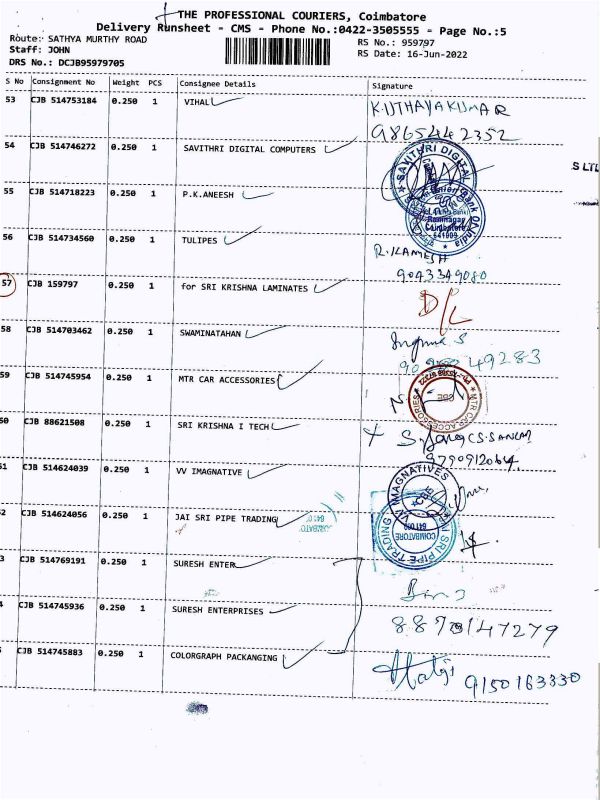 THE PROFESSIONAL COURIERS, Coimbatore
Delivery Runsheet - CMS - Phone No.:0422-3505555 - Page No.:5
Route: SATHYA MURTHY ROAD RS No.: 959797
Staff: JOHN RS Date: 16-Jun-2022
DRS No.: DCJB95979705
S No Consignment No Weight PCS Consignee Details Signature
53 CJB 514753184 0.250 1 VIHAL K.UTHAYAKUMAR
9865442352
54 CJB 514746272 0.250 1 SAVITHRI DIGITAL COMPUTERS SAVITHRI DIGITAL
S LTD
55 CJB 514718223 0.250 1 P.K.ANEESH Bank Of India
Ramnagar
Coimbatore
641009
56 CJB 514734560 0.250 1 TULIPES R.KAMESH
9043349080
57 CJB 159797 0.250 1 for SRI KRISHNA LAMINATES D/L
58 CJB 514703462 0.250 1 SWAMINATAHAN
49283
59 CJB 514745954 0.250 1 MTR CAR ACCESSORIES MTR CAR ACCESSORIES
CBE
60 CJB 88621508 0.250 1 SRI KRISHNA I TECH
9790912064
61 CJB 514624039 0.250 1 VV IMAGNATIVE VV IMAGNATIVES
62 CJB 514624056 0.250 1 JAI SRI PIPE TRADING JAI SRI PIPE TRADING
COIMBATORE
3 CJB 514769191 0.250 1 SURESH ENTER
4 CJB 514745936 0.250 1 SURESH ENTERPRISES 8870147279
5 CJB 514745883 0.250 1 COLORGRAPH PACKANGING 9150163330